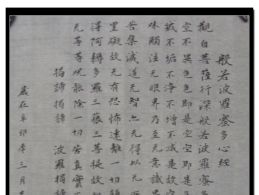 般若波羅蜜多心經
觀自在菩薩行深般若波羅蜜
空不異色色即是空空
垢不淨不增不減是故空
味觸法无眼界乃至无意識
苦集滅道无智亦无得以无所
罣礙故无有恐怖遠離一切
得阿耨多羅三藐三菩提故
无等等呪能除一切苦真實
揭諦揭諦 波羅揭
歲在辛卯季三月